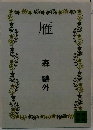 雁
森 鷗外